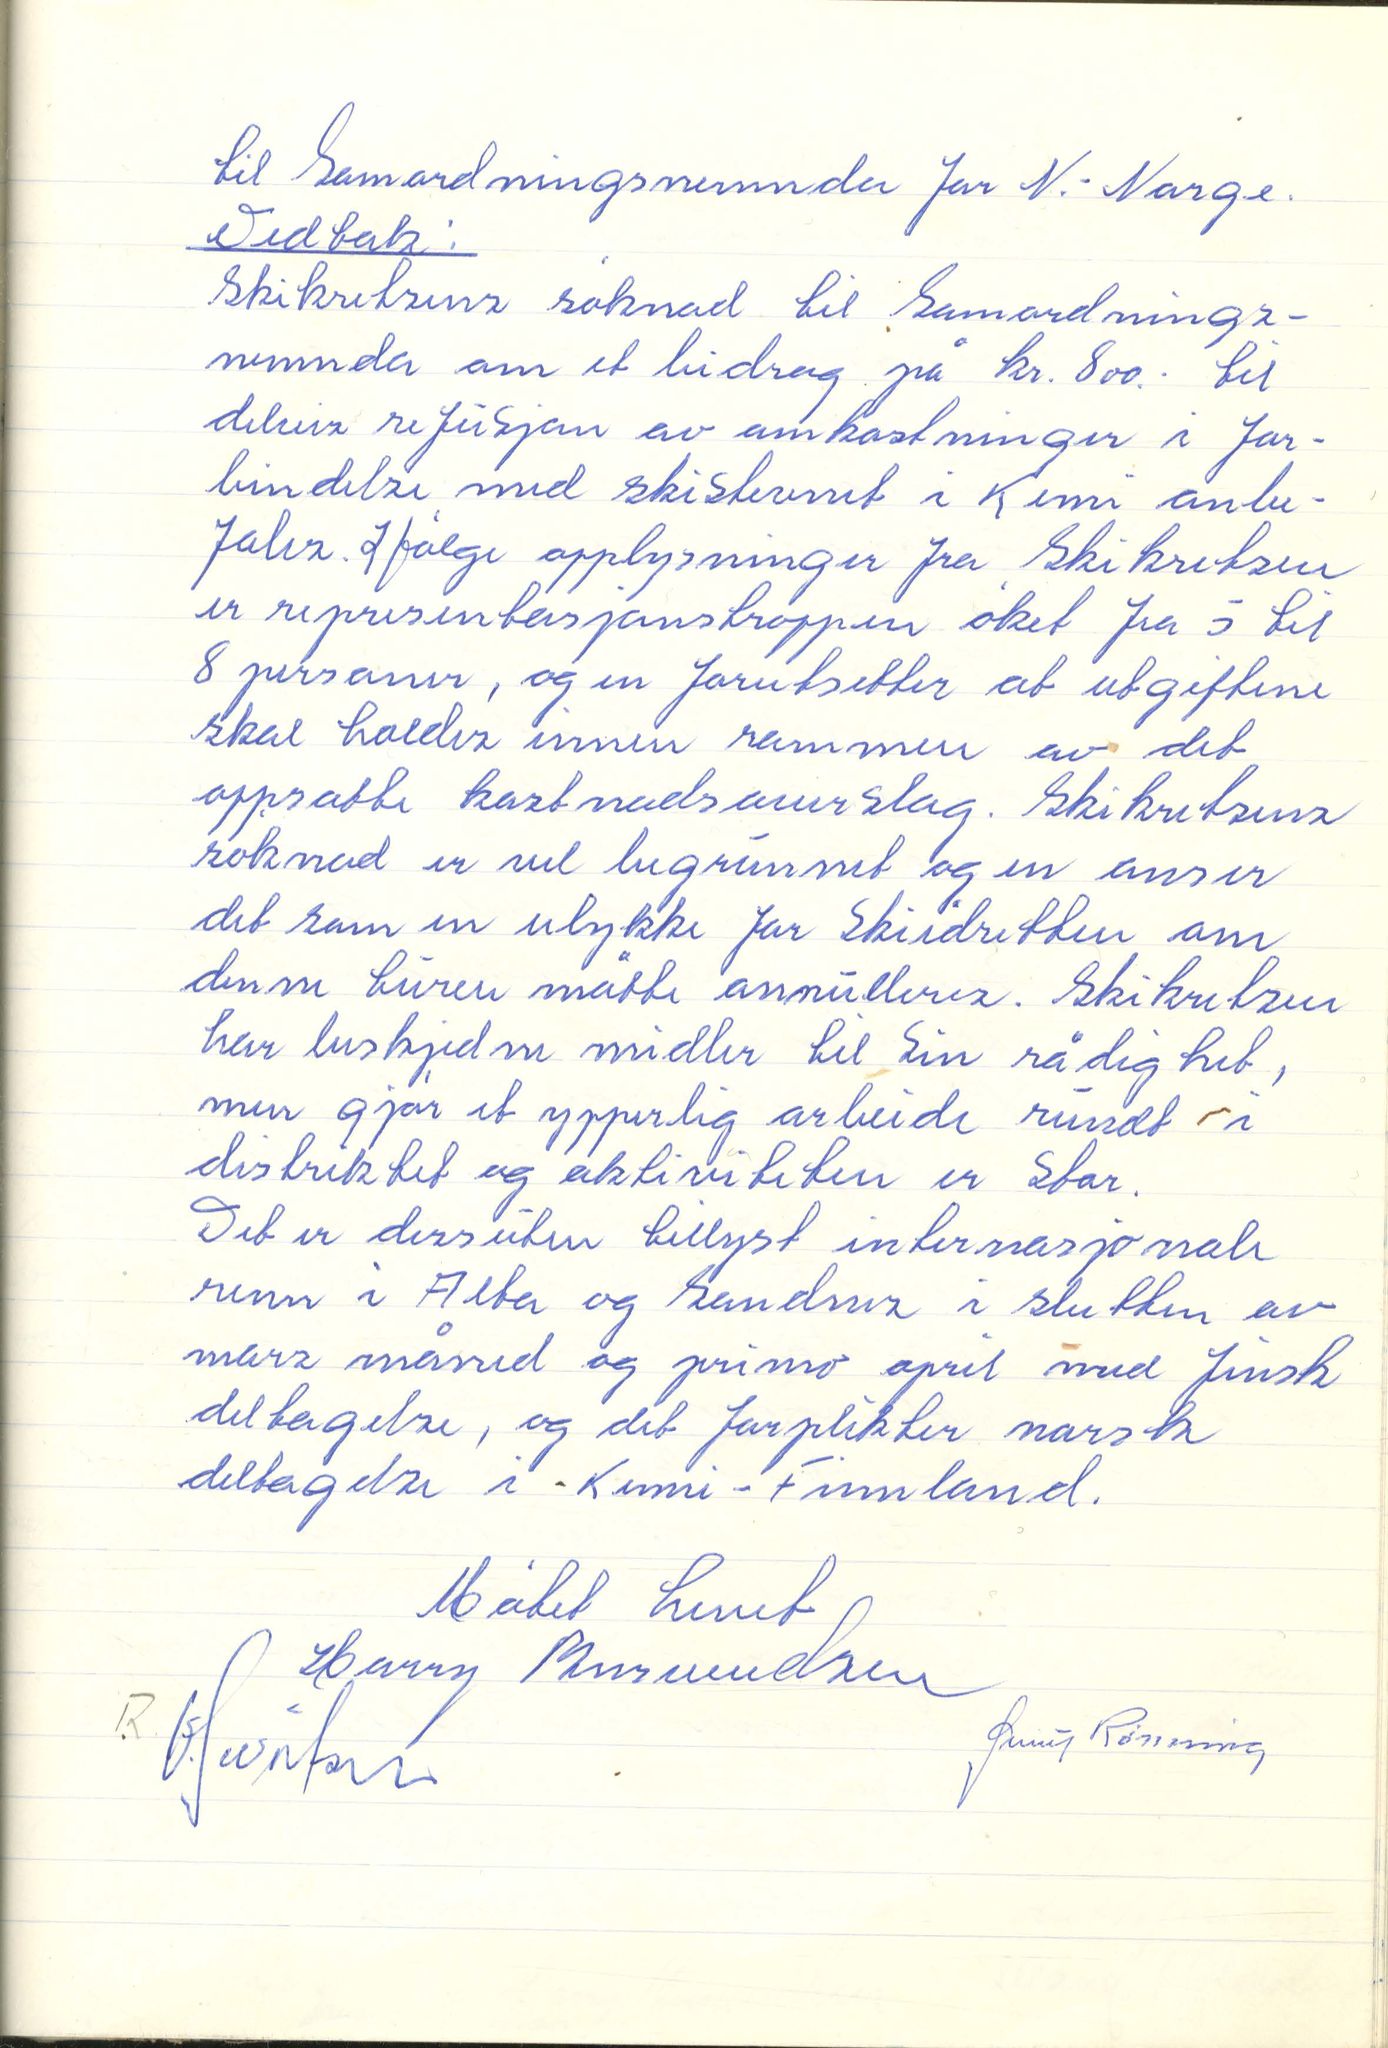 til Samordningsnemnda for N.- Norge.
Vedtak:
Skikretsens søknad til Samordnings-
nemnda om et bidrag på kr. 800.- til
delvis refusjon av omkostninger i for-
bindelse med skistevnet i Kemi anbe-
fales. Ifølge opplysninger fra Skikretsen
er representasjonstroppen øket fra 5 til
8 personer, og en forutsetter at utgiftene
skal holdes innen rammen av det
oppsatte kostnadsoverslag. Skikretsens
søknad er vel begrunnet og en anser
det som en ulykke for skiidretten om
denne turen måtte annulleres. Skikretsen
har beskjedne midler til sin rådighet,
men gjør et ypperlig arbeide rundt i
distriktet og aktiviteten er stor.
Det er dessuten tillyst internasjonale
renn i Alta og Sandnes i slutten av
mars måned og primo april med finsk
deltagelse, og det forplikter norsk
deltagelse i - Kemi - Finnland.
Møtet hevet
Harry Amundsen
R.
Rønning